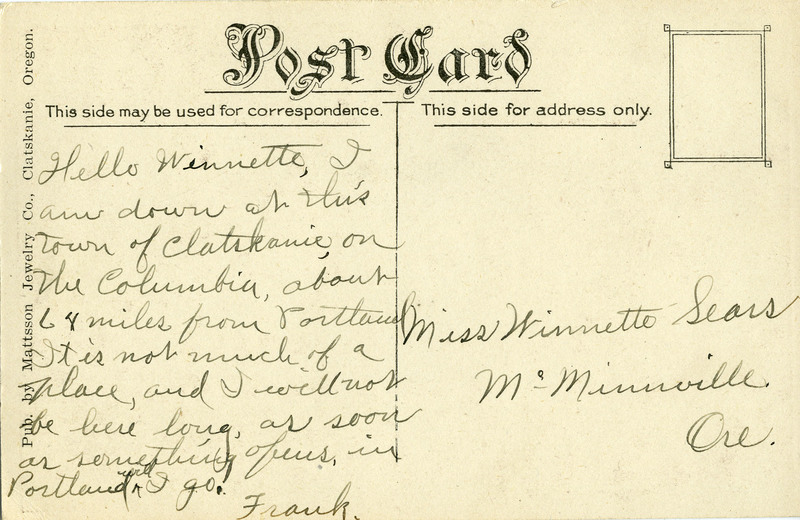 Post Card
This side may be used for correspondence.
This side for address only.
Pub. by Mattsson Jewelry Co., Clatskanie, Oregon.
Hello Winnette, I
am down at this
town of Clatskanie, on
the Columbia, about
68 miles from Portland
It is not much of a
place, and I will not
be here long, as soon
as something opens, in
Portland, I go.
Frank.
Miss Winnette Sears
Mc Minnville.
Ore.